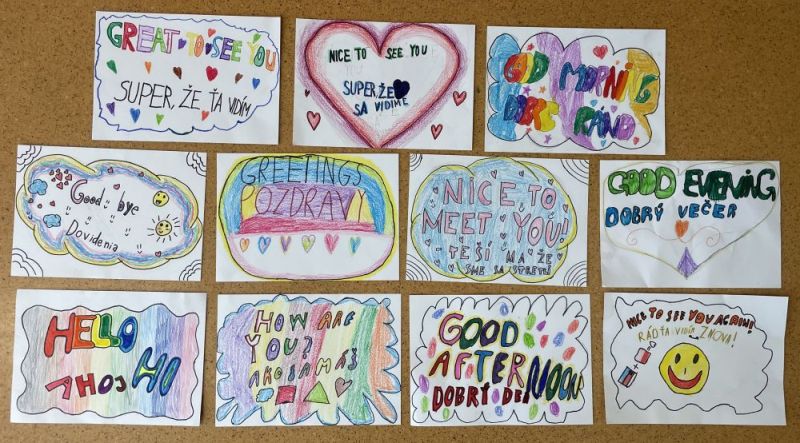 GREAT TO SEE YOU
SUPER, ŽE ŤA VIDÍM
NICE TO SEE YOU
SUPER, ŽE
SA VIDÍME
GOOD MORNING
DOBRÉ RÁNO
Good bye
Dovidenia
GREETINGS
POZDRAVY
NICE TO
MEET YOU!
TEŠÍ MA ŽE
SME SA STRETLI
GOOD EVENING
DOBRÝ VEČER
HELLO
AHOJ HI
HOW ARE
YOU?
AKO SA MÁŠ
GOOD
AFTERNOON
DOBRÝ DEŇ
NICE TO SEE YOU AGAIN!
RÁD ŤA VIDÍM ZNOVA!